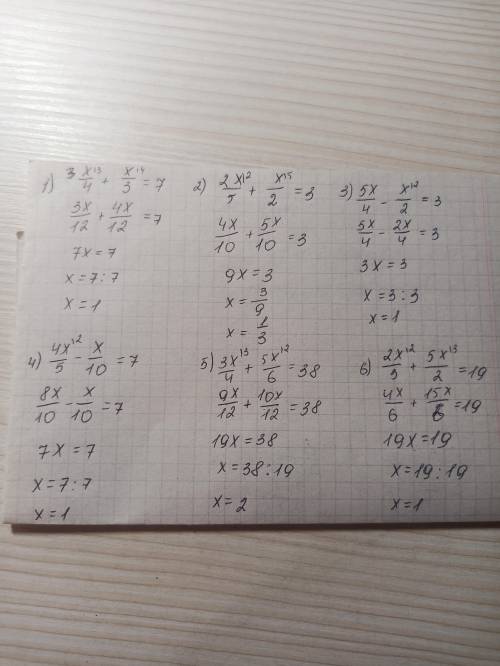 1) 3 x¹³/4 + x¹⁴/3 = 7
3x/12 + 4x/12 = 7
7x = 7
x = 7 : 7
x = 1
2) 2x¹²/5 + x¹⁵/2 = 3
4x/10 + 5x/10 = 3
9x = 3
x = 3/9
x = 1/3
3) 5x/4 - x¹²/2 = 3
5x/4 - 2x/4 = 3
3x = 3
x = 3 : 3
x = 1
4) 4x¹²/5 - x/10 = 7
8x/10 - x/10 = 7
7x = 7
x = 7 : 7
x = 1
5) 3x¹³/4 + 5x¹²/6 = 38
9x/12 + 10x/12 = 38
19x = 38
x = 38 : 19
x = 2
6) 2x¹²/3 + 5x¹³/2 = 19
4x/6 + 15x/6 = 19
19x = 19
x = 19 : 19
x = 1